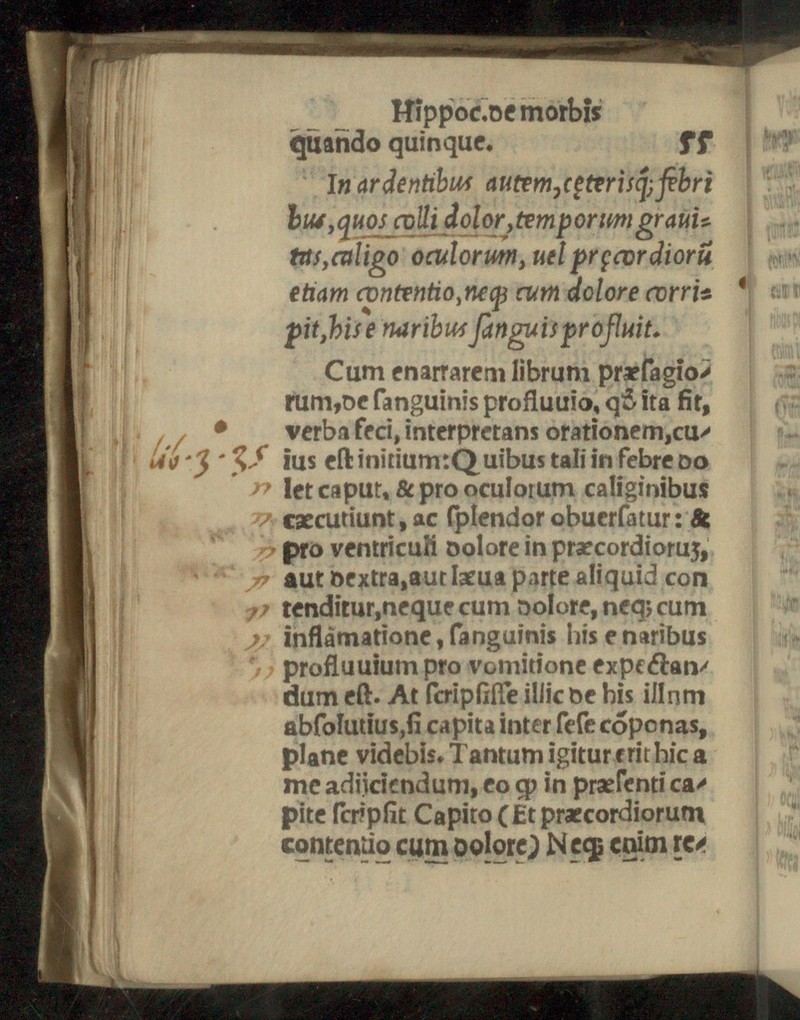 Hippoc.de morbis
quando quinque. 55
In ardentibus autem,cęterisq; febri
bus,quos colli dolor,temporum graui-
tas,caligo oculorum, uel pręcordiorū
etiam contentio,neq; cum dolore corri-
pit,his e naribus sanguis profluit.
Cum enarrarem librum præsagio-
rum,de sanguinis profluuio, qđ ita fit,
verba feci, interpretans orationem,cu-
lib-3-35 ius est initium: Quibus tali in febre do
” let caput, & pro oculorum caliginibus
” cæcutiunt, ac splendor obuersatur: &
” pro ventriculi dolore in præcordioruʒ,
” aut dextra,aut læua parte aliquid con
” tenditur,neque cum dolore, neq; cum
” inflāmatione, sanguinis his e naribus
” profluuium pro vomitione expectan-
dum est. At scripsisse illic de his illnm
absolutius,si capita inter sese cōponas,
plane videbis. Tantum igitur erit hic a
me adijciendum, eo ꝙ in præsenti ca-
pite scripsit Capito (Et præcordiorum
contentio cum dolore) Neq; enim re-